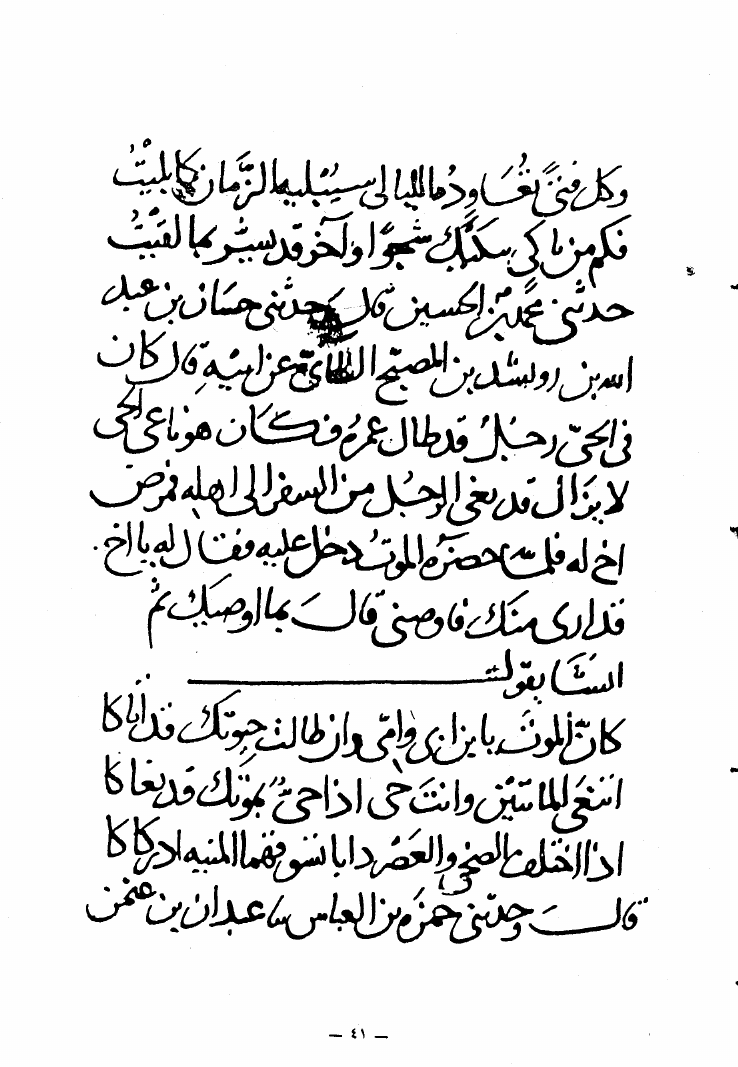 وكل فتىً تُعَاوِدُه الليالى سيُبليه الزَّمان كما بليتُ
فكم من باكى سكنَّك شجوًا وآخر قد يسر بما لقيتُ
حدثنى محمد بن الحسين قال حدثنى حسان بن عبد
الله بن رويشد بن المصبّح الطائى عن ابيه قال كان
فى الحىّ رجُلٌ قد طال عمرهُ فكان هو ناعى الحى
لا يزال قد نعى الرجُل من السفر الى اهله فمرض
اخ له فلما حضرَه الموتُ دخل عليه فقال له يا اخ
قد ارى منك فاوصنى قال بما اوصيك ثم
انشا يقول
كانّ الموتَ يا بن ابى وامّى وان طالت حيوتك قد اتاكا
اتنعَى الميّتينَ وانتَ حى اذا حىٌّ بموتك قد نعاكا
اذا اختلف الضحى والعَصْر دابا يسوقهما المنيه ادركاكا
قالَ وحدثنى حمزه بن العباس سا عبدان بن عثمن
— ٤١ —